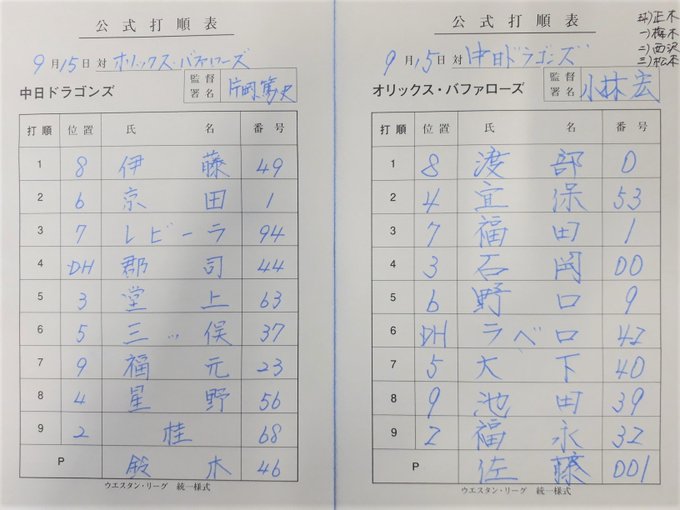 公式打順表
9月15日 対 オリックス・バファローズ
中日ドラゴンズ 監督署名 片岡篤史
打順 位置 氏名 番号
1 8 伊藤 49
2 6 京田 1
3 7 レビーラ 94
4 DH 郡司 44
5 3 堂上 63
6 5 三ッ俣 37
7 9 福元 23
8 4 星野 56
9 2 桂 68
P 鈴木 46
ウエスタン・リーグ 統一様式
公式打順表
球)正木
一)梅木
二)西沢
三)松本
9月15日 対 中日ドラゴンズ
オリックス・バファローズ 監督署名 小林宏
打順 位置 氏名 番号
1 8 渡部 0
2 4 宜保 53
3 7 福田 1
4 3 石岡 00
5 6 野口 9
6 DH ラベロ 42
7 5 大下 40
8 9 池田 39
9 2 福永 32
P 佐藤 001
ウエスタン・リーグ 統一様式